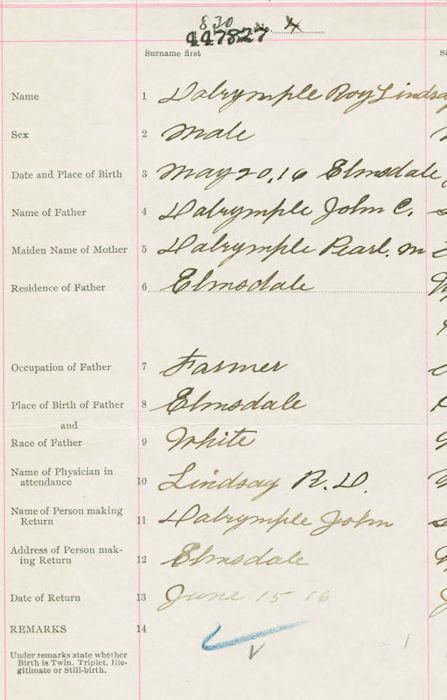 830
447827 No. 4
Surname first
Name 1 Dalrymple Roy Lindsay
Sex 2 Male
Date and Place of Birth 3 May 20, 16 Elmsdale
Name of Father 4 Dalrymple John C.
Maiden Name of Mother 5 Dalrymple Pearl. M
Residence of Father 6 Elmsdale
Occupation of Father 7 Farmer
Place of Birth of Father 8 Elmsdale
and
Race of Father 9 White
Name of Physician in
attendance 10 Lindsay R. D.
Name of Person making
Return 11 Dalrymple John
Address of Person mak-
ing Return 12 Elmsdale
Date of Return 13 June 15 16
REMARKS 14
Under remarks state whether
Birth is Twin, Triplet, Ille-
gitimate or Still-birth.